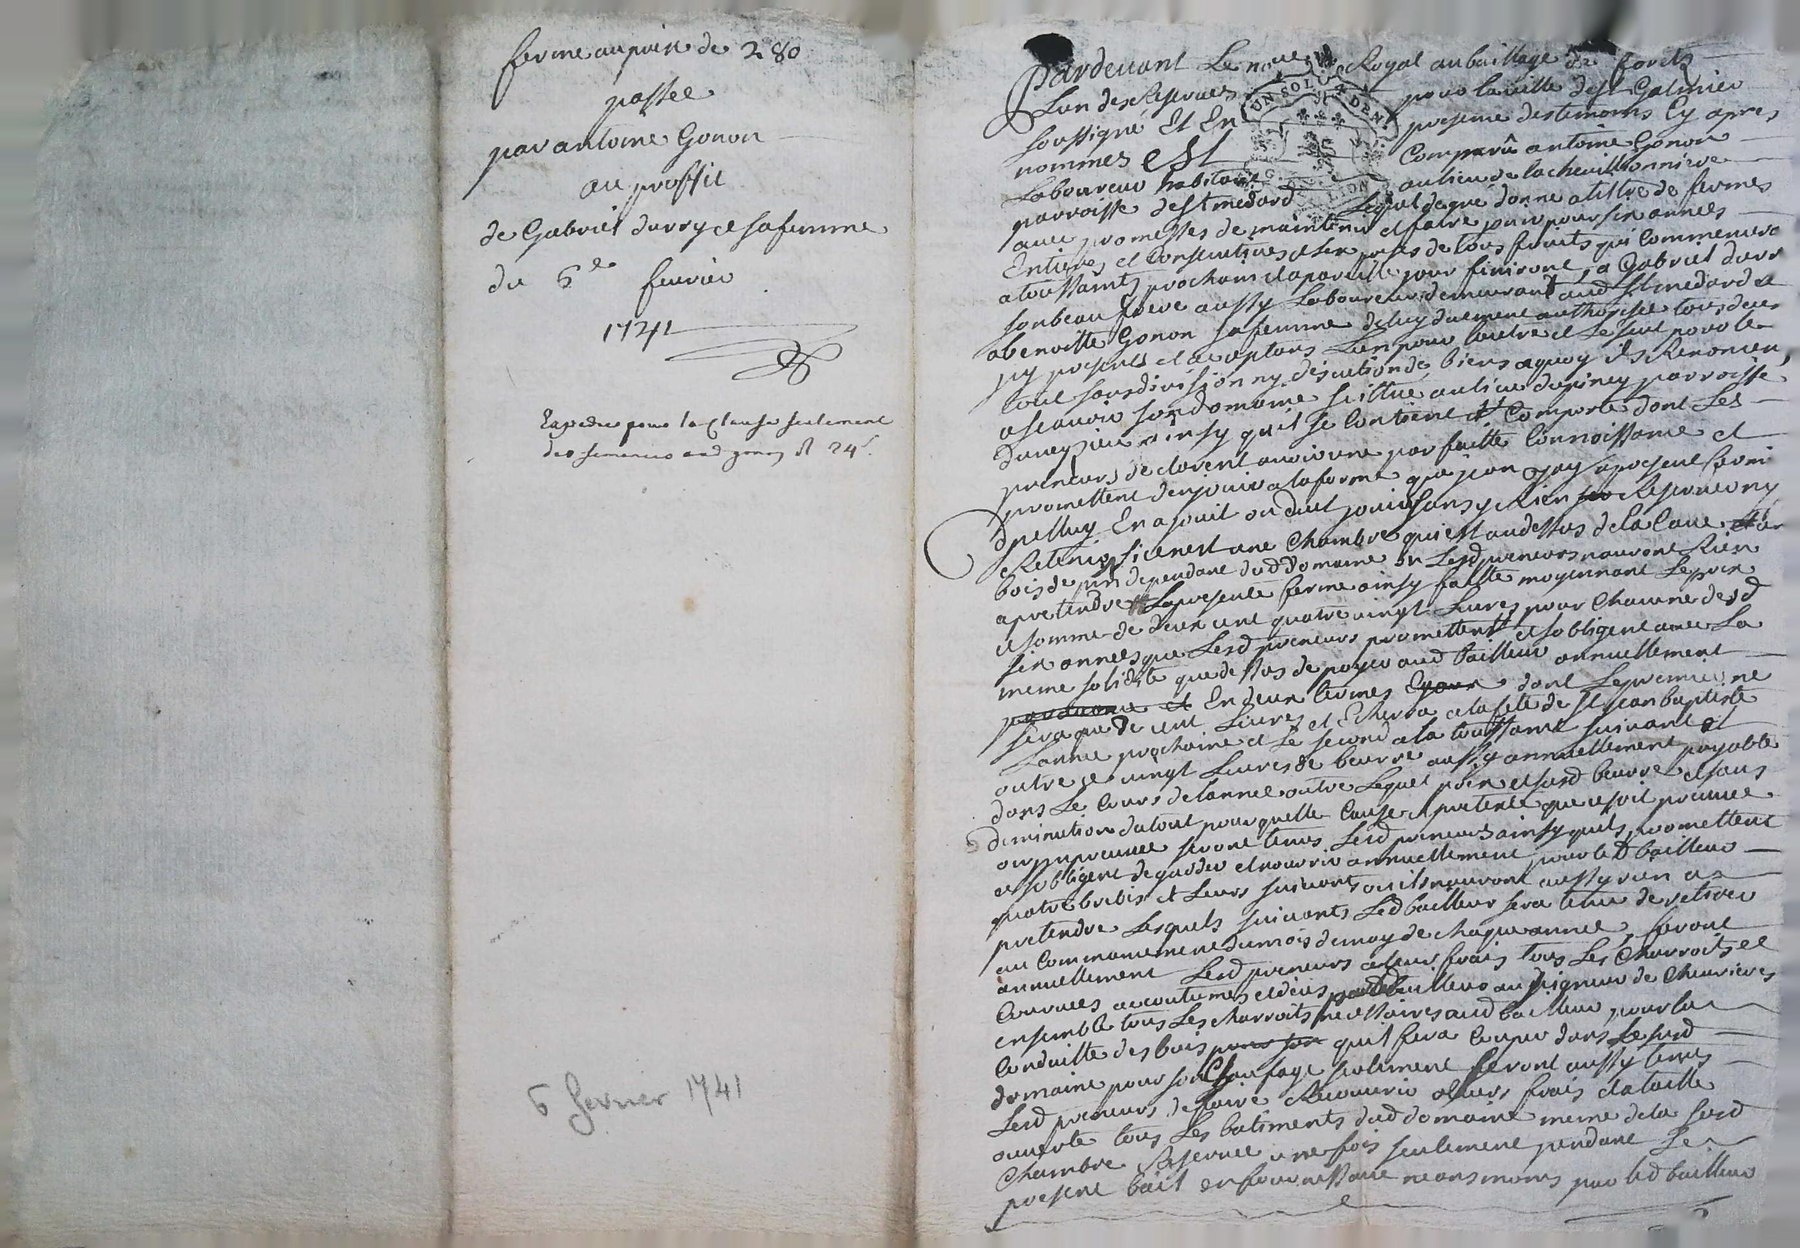 ferme au prix de 280
passée
par antoine Gonon
au proffit
de Gabriel durry et sa femme
du 6e fevrier
1741
Expediee pour la Clause seulement
des semences aud gonon
6 fevrier 1741
Pardevant Le nore Royal au baillage de forets
Lun des Reservés pour la ville de St Galmier
soussigné Et En presence des temoins Cy apres
nommés Est Comparû antoine Gonon
Laboureur habitant au lieu de la cheuillonniere
parroisse de St medard Lequel de gré donne a tiltre de fermes
avec promesses de maintenir et faire jouir pour six années
Entieres et Consecutives et six prises de tous fruits qui Commenceront
a toussaints prochain et a pareille jour finiront, a Gabriel durry
son beau frere aussy Laboureur demeurant aud St medard et
a benoitte Gonon sa femme de luy duement authorisée tous deux
icy presents et acceptans Lun pour lautre et Le seul pour le
tout sans division ny discution de biens a quoy ils Renoncent,
a scavoir son domaine scittué au lieu du piney parroisse
d'aveyzieu ainsy quil se Contient et Comporte dont Les
preneurs declarent avoir une parfaitte Connoissance et
promettent den jouir a la forme que jean jay a present fermier
dyelluy En a jouit ou deut jouir sans y Rien Reserver ny
Retenir si cenest une Chambre qui est au dessus de la Cave et un
bois de pin dependant dud domaine ou Lesd preneurs nauront Rien
a pretendre La presente ferme ainsy faitte moyennant Le prix
et somme de deux cent quatre vingt Livres pour Chacune desd
six années que Lesd preneurs promettent et sobligent avec La
meme solidité que dessus de payer aud bailleur annuellement
En deux termes dont Le premier ne
sera que de cent Livres et Echerra a la fete de St jean baptiste
Lannée prochaine et Le second a la toussaint suivant et
outre ce vingt Livres de beurre aussy annuellement payable
dans Le Cours de lannée outre Lequel prix et susd beurre et sans
diminution du tout pour quelle Cause et pretexte que ce soit preveue
ou impreveue seront tenus Lesd preneurs ainsy quils promettent
et sobligent de garder et nourrir annuellement pour led bailleur
quatre brebis et Leurs suivants ou ils nauront aussy rien a
pretendre Lesquels suivants Led bailleur sera tenu de retirer
au Commancement du mois de may de chaque année, feront
annuellement Lesd preneurs a leur frais tous Les Charrois et
Courvées accoutumés et deus par led bailleur au seigneur de Chevrieres
ensemble tous Les charroits necessaires aud bailleur pour la
Conduitte des bois quil fera Couper dans Le susd
domaine pour son Chaufage seulement seront aussy tenus
Lesd preneurs de faire Recouvrir a leurs frais et a taille
ouverte tous Les batiments dud domaine meme de la susd
Chambre Reservée une fois seulement pendant Le
present bail en fournissant neansmoins par led bailleur